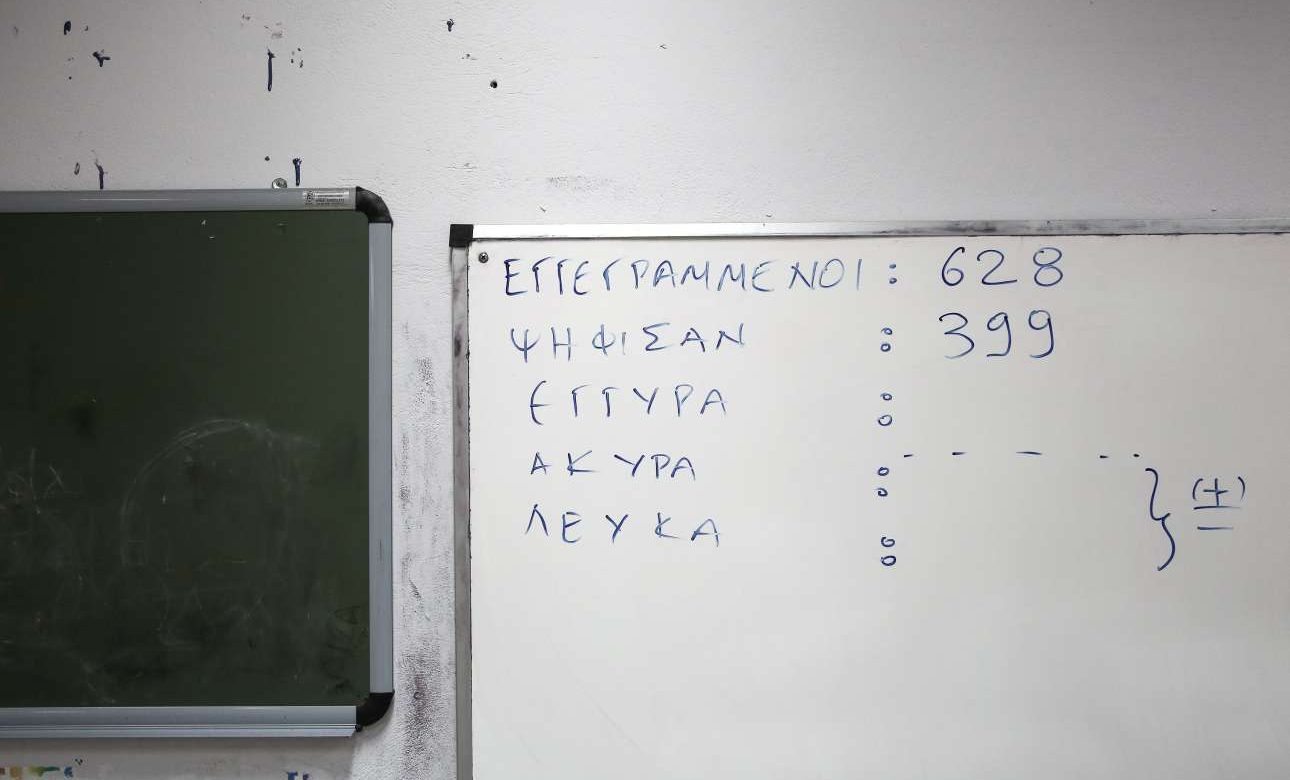 ΕΓΓΕΓΡΑΜΜΕΝΟΙ : 628
ΨΗΦΙΣΑΝ : 399
ΕΓΓΥΡΑ :
ΑΚΥΡΑ : - - - - -
ΛΕΥΚΑ : } (+)